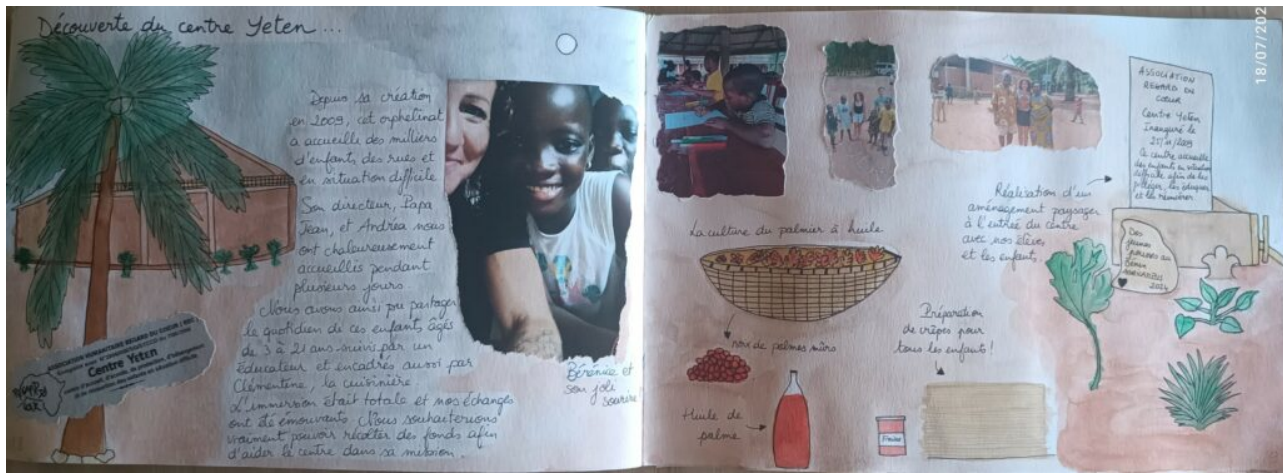 Découverte du centre Yeten ...
Depuis sa création
en 2009, cet orphelinat
a accueilli des milliers
d'enfants des rues et
en situation difficile
Son directeur, Papa
Jean, et Andréa nous
ont chaleureusement
accueillis pendant
plusieurs jours.
Nous avons ainsi pu partager
le quotidien de ces enfants âgés
de 3 à 21 ans suivis par un
éducateur et encadrés aussi par
Clémentine, la cuisinière.
L'immersion était totale et nos échanges
ont été émouvants. Nous souhaiterions
vraiment pouvoir récolter des fonds afin
d'aider le centre dans sa mission.
ASSOCIATION HUMANITAIRE REGARD DU COEUR
Centre Yeten
Bérénice et
son joli
sourire
La culture du palmier à huile
noix de palmes mûrs
Huile de
palme
Préparation
de crêpes pour
tous les enfants !
Réalisation d'un
aménagement paysager
à l'entrée du centre
avec nos élèves
et les enfants.
ASSOCIATION
REGARD DU
COEUR
Centre Yeten
Inauguré le
Ce centre accueille
des enfants en situation
difficile afin de les
protéger, les éduquer
et les réinsérer
Des
jeunes
au
Bénin
2024
18/07/202